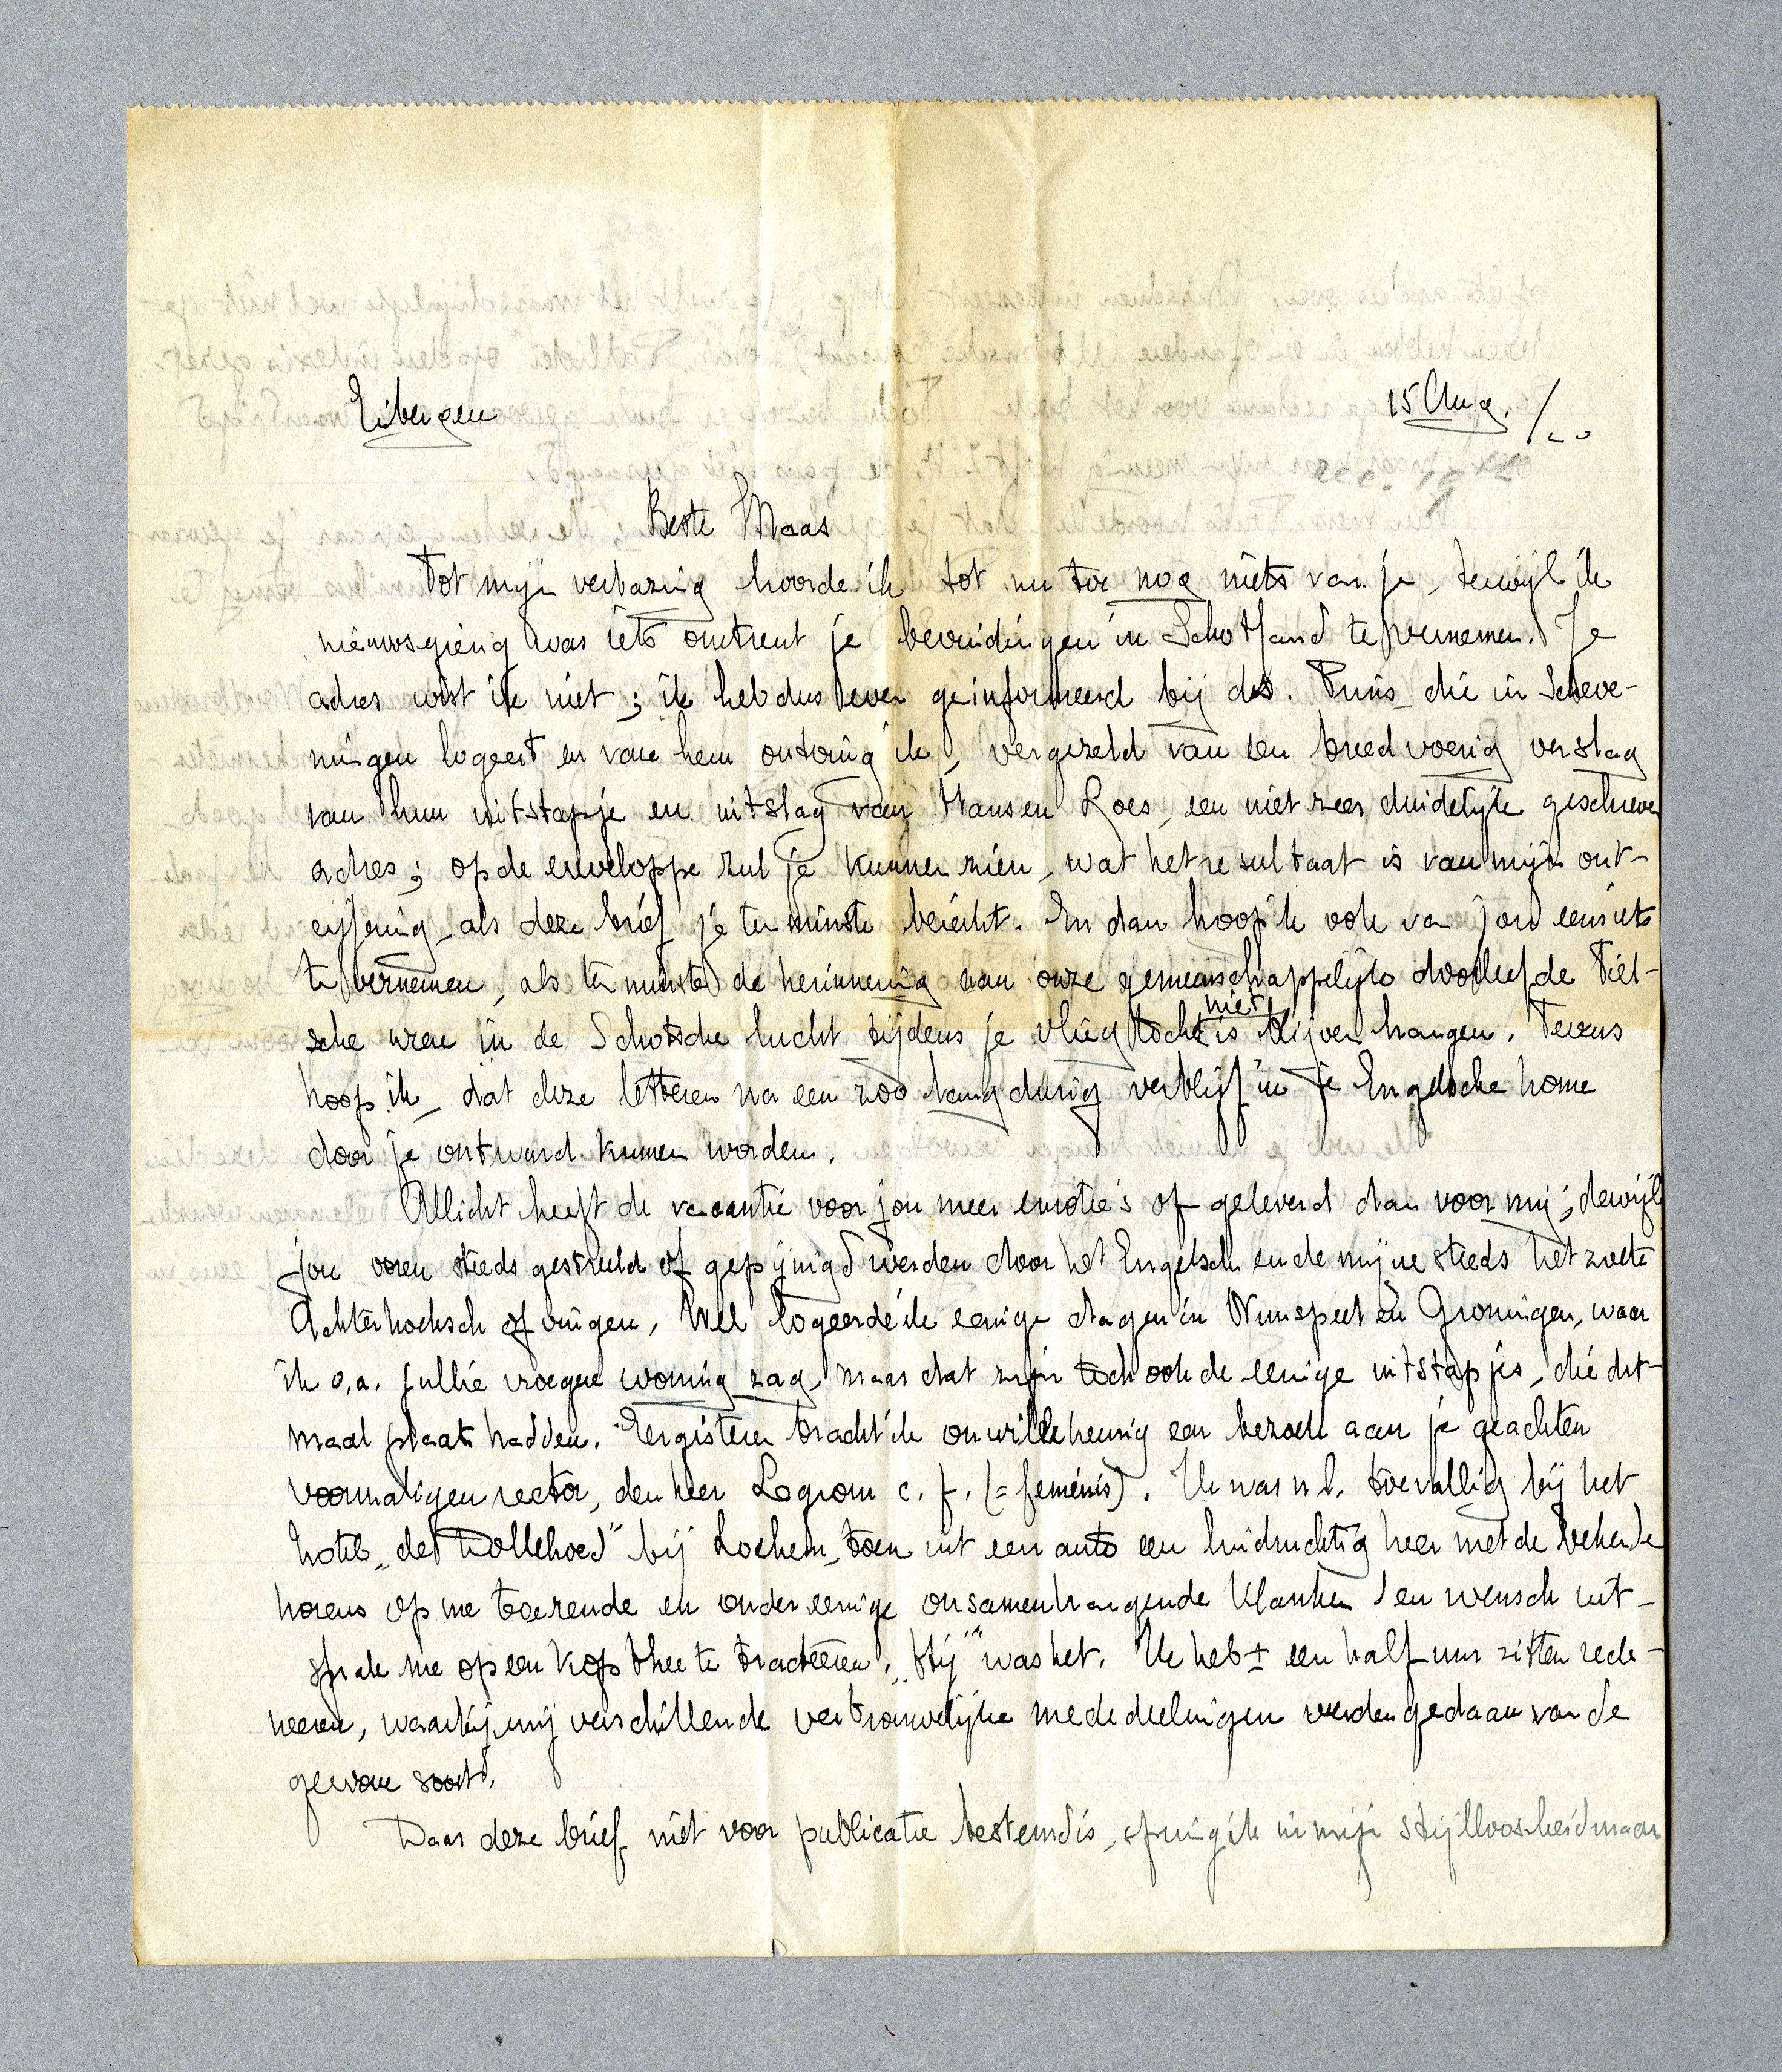 Eibergen 15 Aug. /20
Beste Maas
Tot mijn verbazing hoorde ik tot nu toe nog niets van je, terwijl ik
nieuwsgierig was iets omtrent je bevindingen in Schotland te vernemen. Je
adres wist ik niet; ik heb dus even geinformeerd bij ds. Prins, die in Scheve-
ningen logeert en van hem ontving ik, vergezeld van een breedvoerig verslag
van hun uitstapje en uitslag van Hans en Roes, een niet zeer duidelijk geschreven
adres; op de enveloppe zul je kunnen zien, wat het resultaat is van mijn ont-
cijfering, als deze brief je ten minste bereikt. En dan hoop ik ook van jou eens iets
te vernemen, als ten minste de herinnering aan onze gemeenschappelijke doorleefde Tiel-
sche uren in de Schotsche lucht tijdens je vliegtocht is niet blijven hangen. Tevens
hoop ik, dat deze letteren na een zoo langdurig verblijf in je Engelsche home
door je ontward kunnen worden.
Allicht heeft de vacantie voor jou meer emotie's opgeleverd dan voor mij; dewijl
jou ooren steeds gestreeld of gepijnigd werden door het Engelsch en de mijne steeds het zoete
Achterhoeksch opvingen. Wel logeerde ik eenige dagen in Nunspeet en Groningen, waar
ik o.a. jullie vroegere woning zag, maar dat zijn toch ook de eenige uitstapjes, die dit-
maal plaats hadden. Eergisteren bracht ik onwillekeurig een bezoek aan je geachten
voormaligen rector, den heer Legrom c. f. (= feminis). Ik was n.l. toevallig bij het
hotel „de Dollehoed" bij Lochem, toen uit een auto een luidruchtig heer met de bekende
horens op me toerende en onder eenige onsamenhangende klanken den wensch uit-
sprak me op een kop thee te tracteeren. „Hij" was het. Ik heb ± een half uur zitten rede-
neeren, waarbij mij verschillende vertrouwelijke mededeelingen werden gedaan van de
gewone soort.
Daar deze brief niet voor publicatie bestemd is, spring ik in mijn stijlloosheid maar